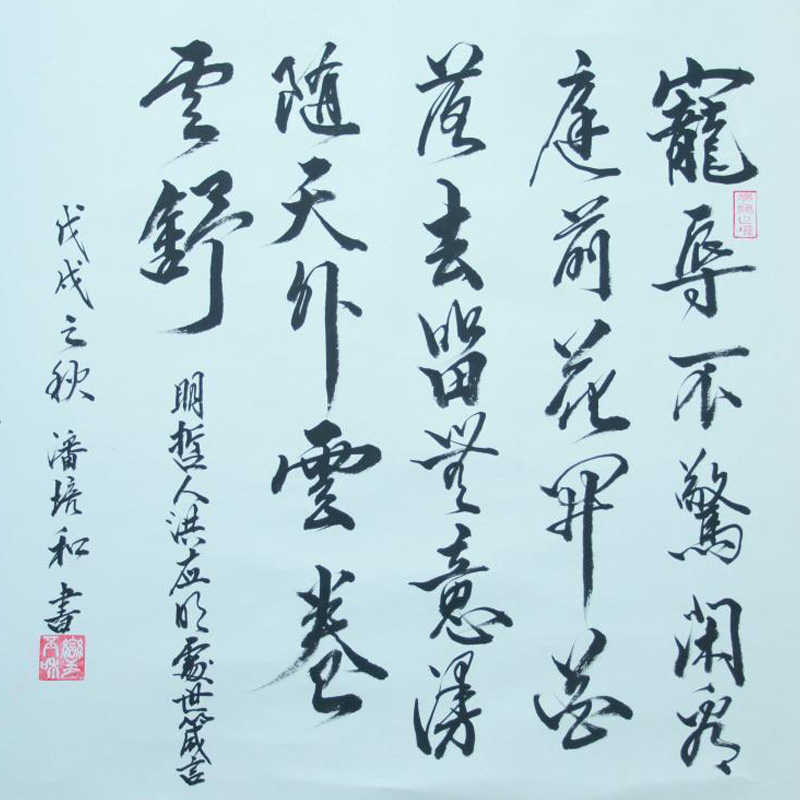 寵辱不驚閑看
庭前花開花
落去留無意漫
隨天外雲卷
雲舒
明哲人洪应明處世箴言
戊戌之秋 潘培和書